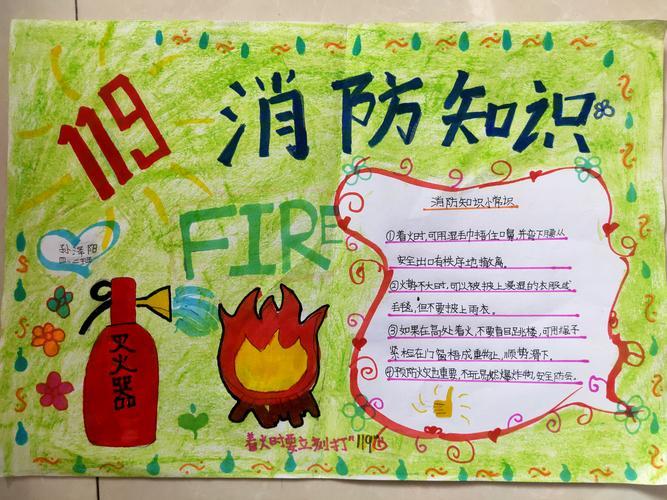 119 消防知识
孙泽阳
FIRE
灭火器
着火时要立刻打"119"
消防知识小常识
①着火时,可用湿毛巾捂住口鼻,并弯下腰从
安全出口有秩序地撤离。
②火势不大时,可以披上浸湿的衣服或
毛毯,但不要披上雨衣。
③如果在高处着火,不要盲目跳楼,可用绳子
紧栓在门窗档或重物上,顺势滑下。
④预防火灾也重要,不玩易燃爆炸物,安全防范。